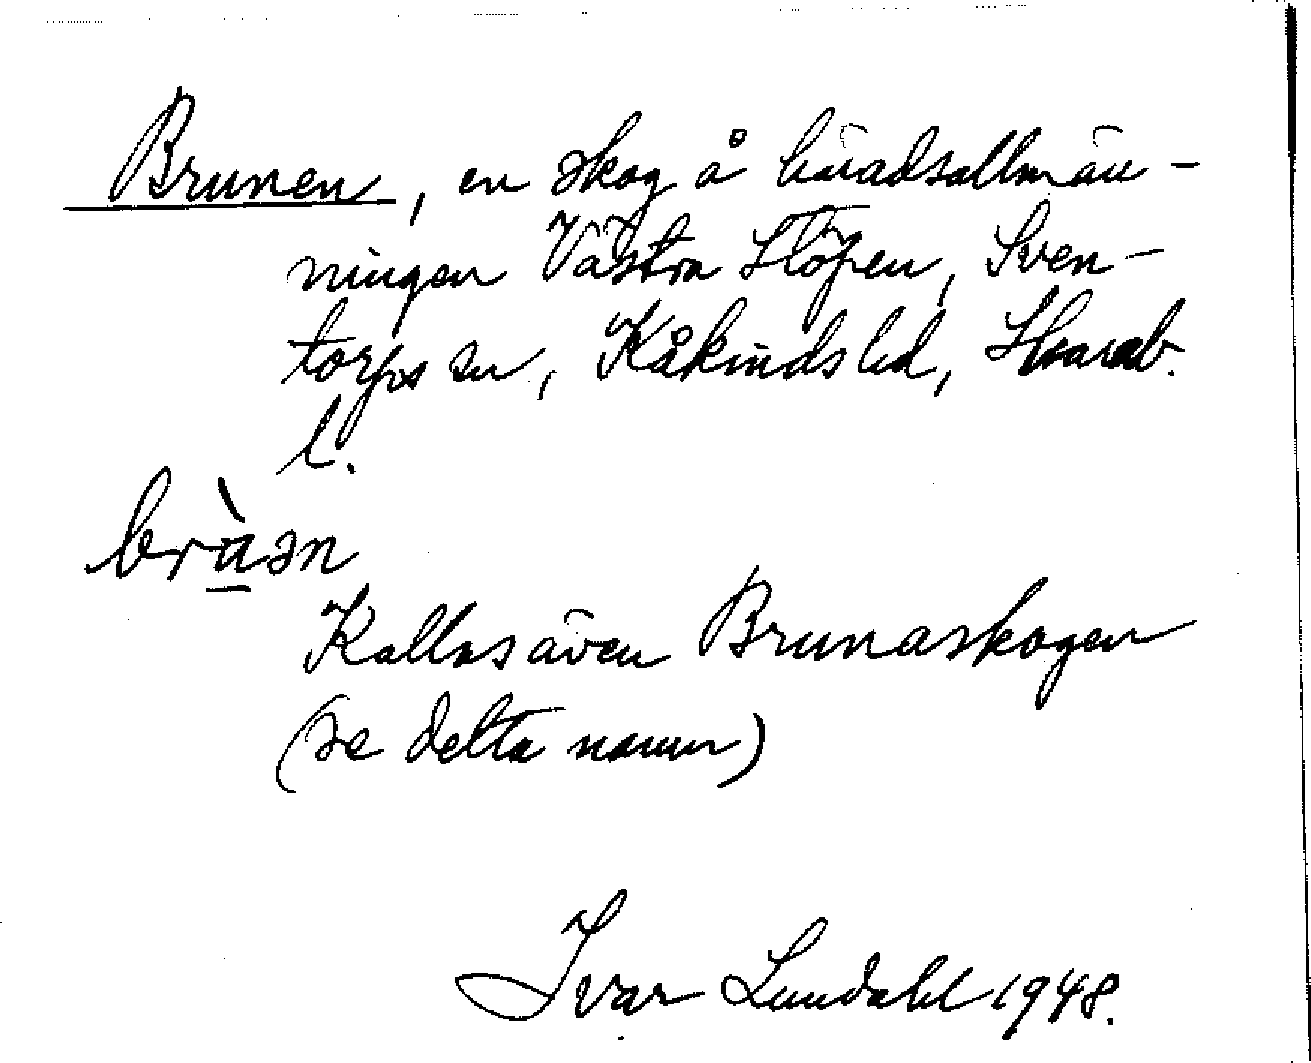 Brunen, en skog å häradsallmän-
ningen Västra Höpen, Sven-
torps sn, Kåkinds hd, Skarab.
l.
brùən
Kallas även Brunaskogen
(se detta namn)
Ivar Lundahl 1948.